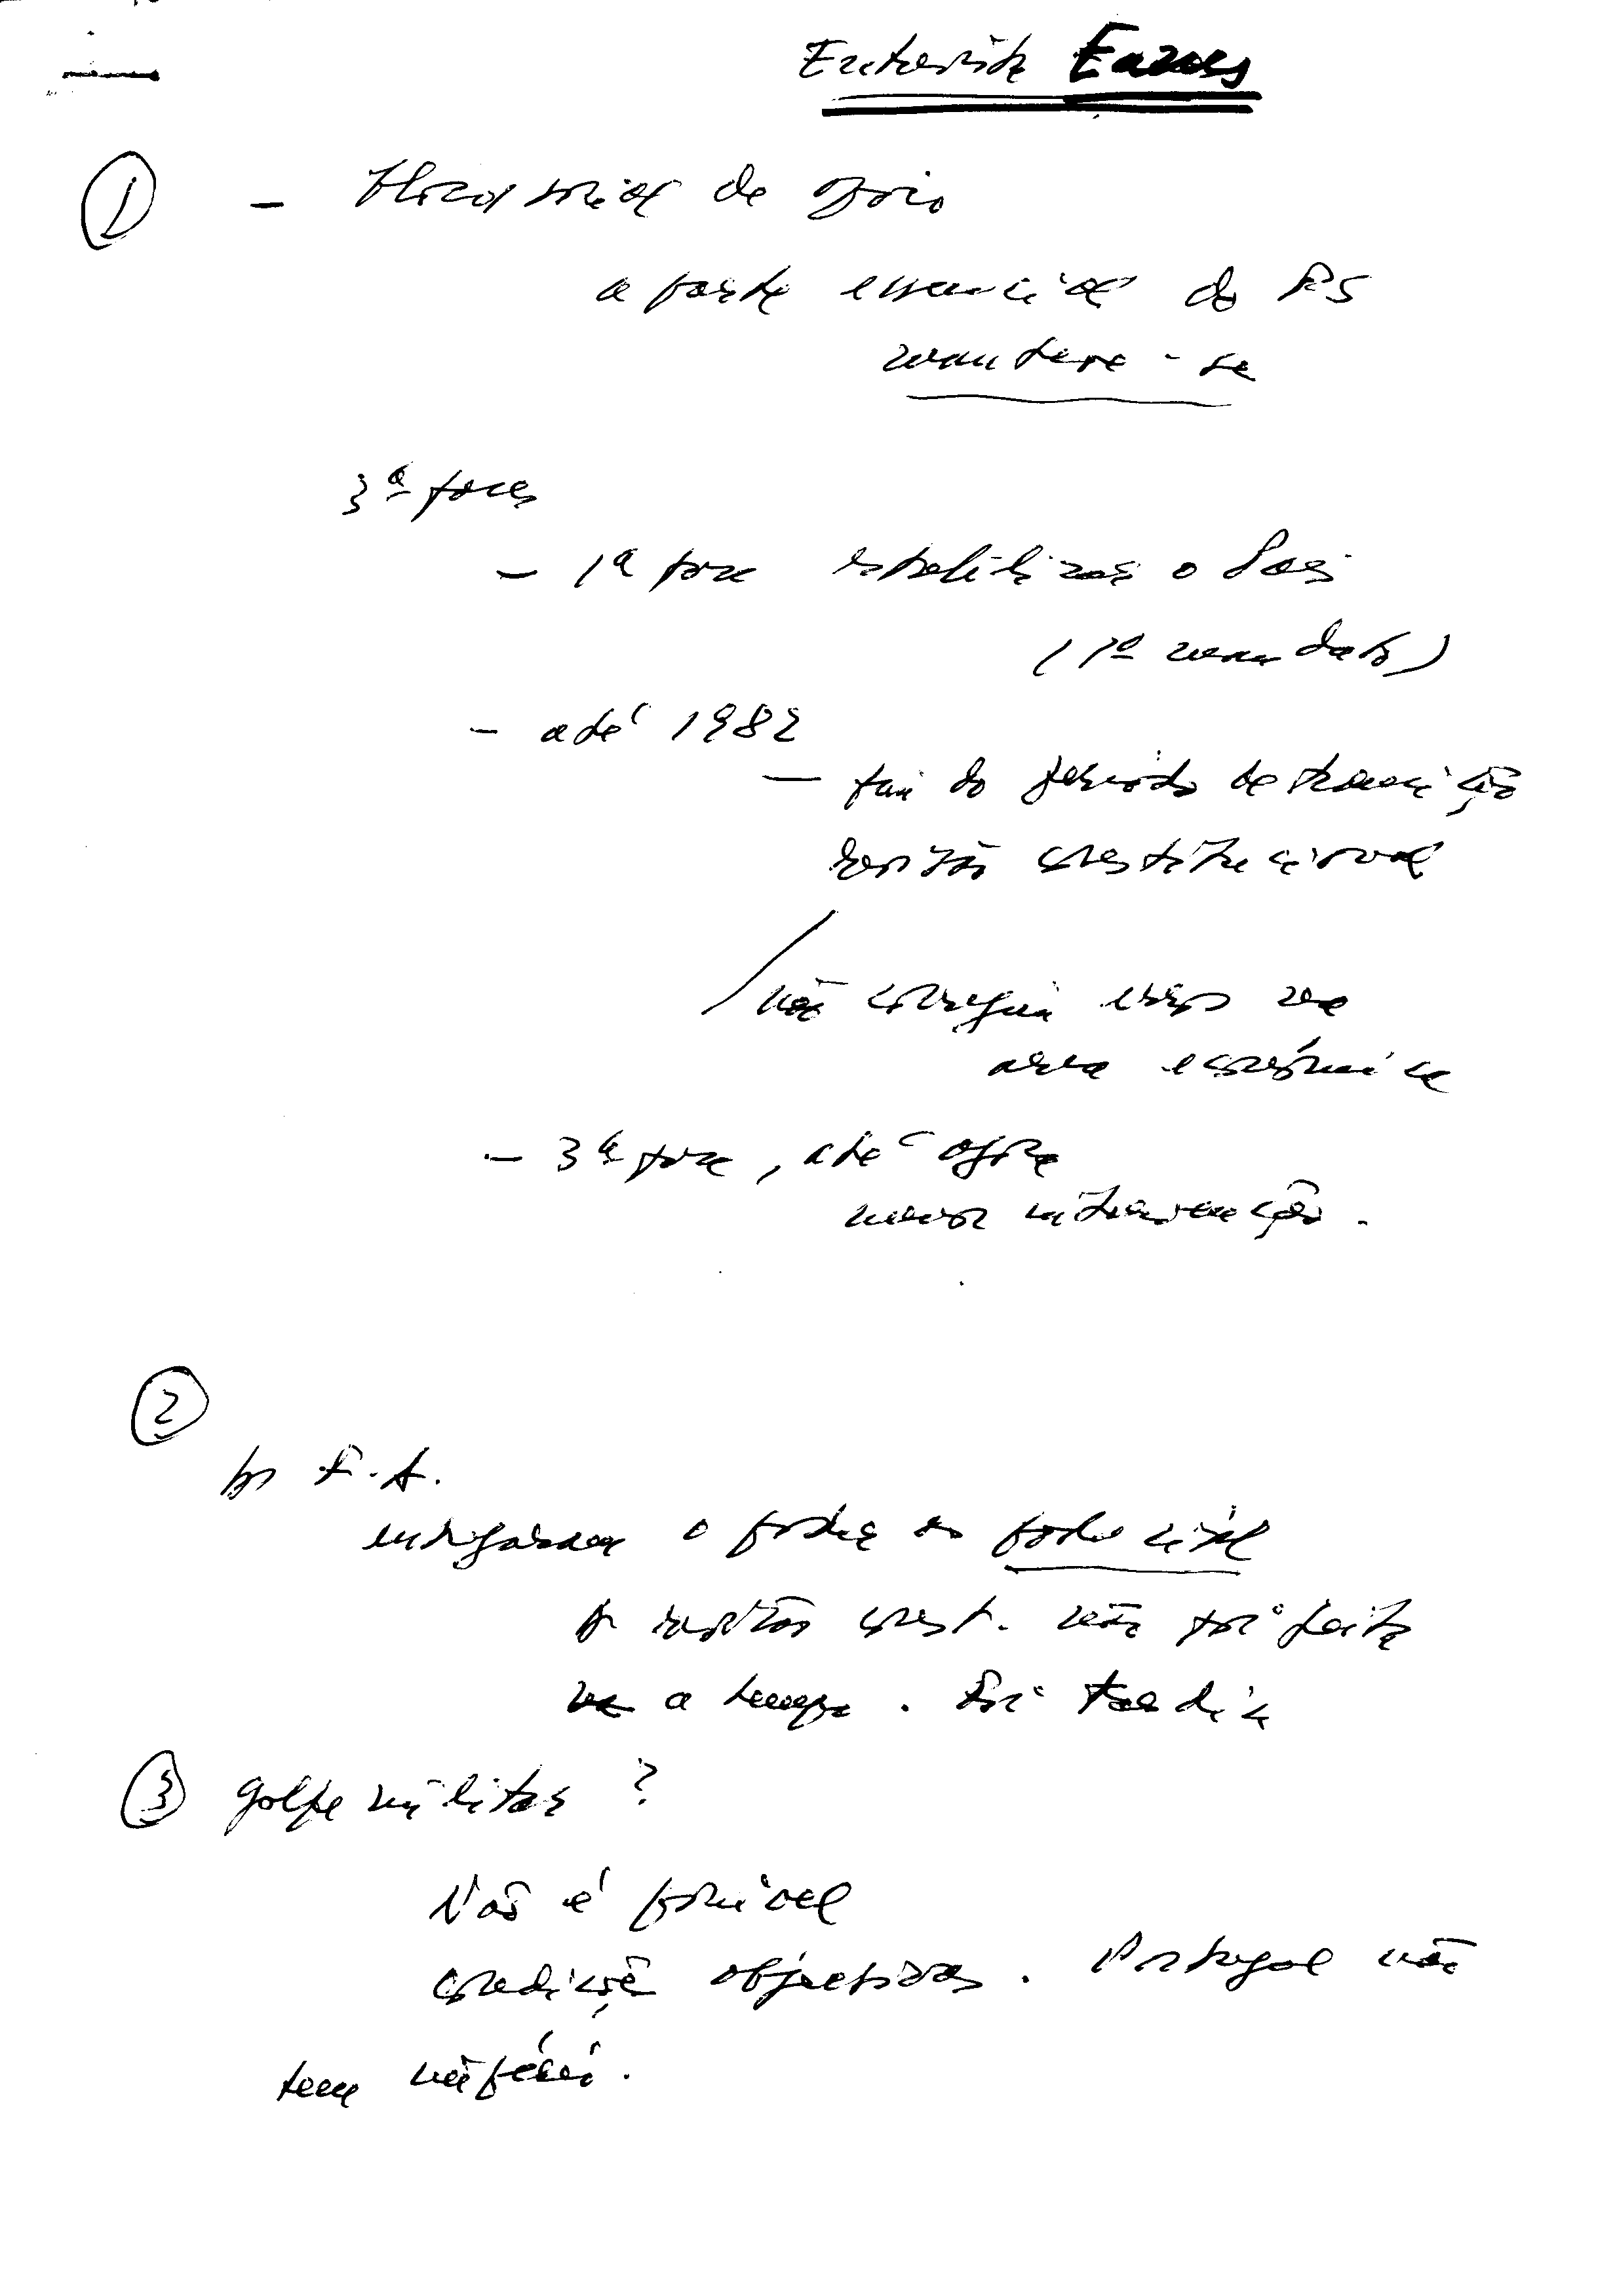 Entrevista Eanes
1 - Bloco social de apoio
a parte essencial do PS
mantem-se
3ª fases
- 1ª fase estabilizar o País
(1º mandato)
- até 1982
- fim do período de transição
revisão constitucional
não consegui isso na
area económica
- 3ª fase, até agora
menor intervenção.
2
As F.A.
entregaram o poder ao poder civil
A revisão const. não foi feita
a tempo. Foi tardia
3 golpe militar?
Não é possível
condições objectivas. Portugal não
tem